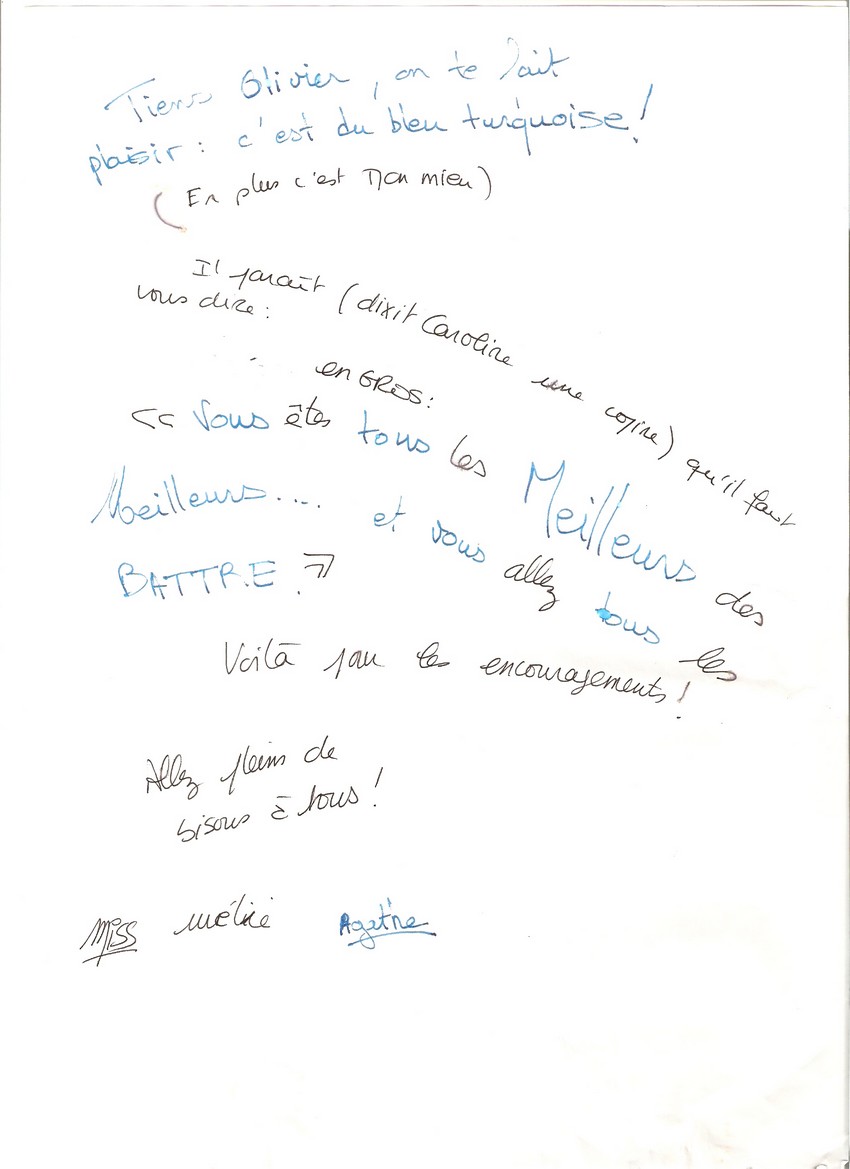 Tiens Olivier, on te fait
plaisir : c'est du bleu turquoise !
(En plus c'est mon mieu)
Il paraît (dixit Caroline une copine) qu'il faut
vous dire :
en GROS :
<< Vous êtes tous les Meilleurs des
Meilleurs.... et vous allez tous les
BATTRE. >>
Voilà pour les encouragements !
Allez pleins de
bisous à tous !
Miss Agathe